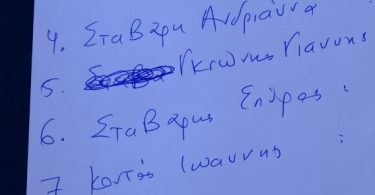 4. Σταβαρη Ανδριάννα
5. Γκιώνης Γιαννης
6. Σταβαρης Σπύρος :
7 Κοντός Ιωαννης :